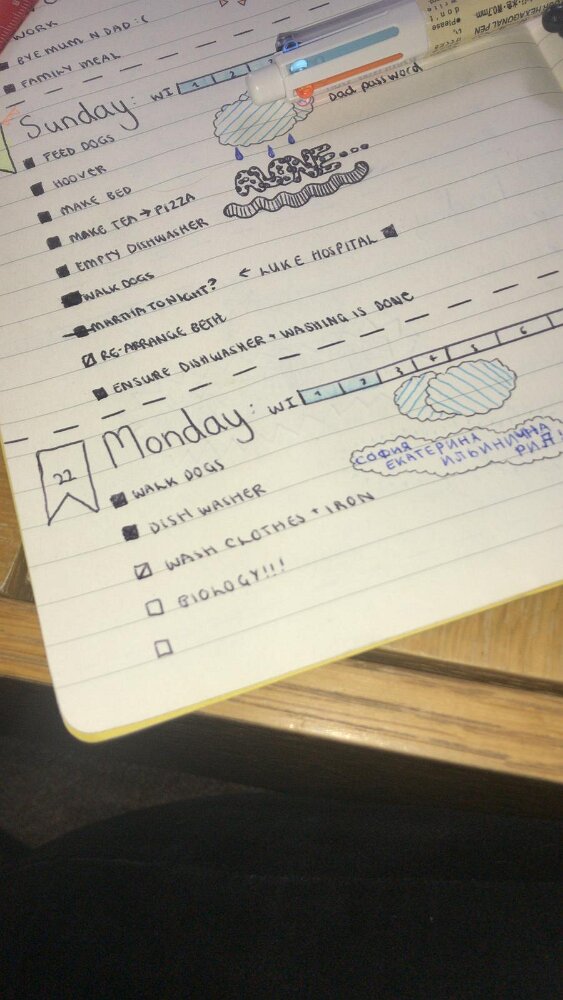 WORK
BYE MUM N DAD :(
FAMILY MEAL
Sunday: WI 1 2 3
Dad password
FEED DOGS
HOOVER
ALONE...
MAKE BED
MAKE TEA → PIZZA
EMPTY DISHWASHER
WALK DOGS
MARTHA TONIGHT? ← LUKE HOSPITAL
RE-ARRANGE BETH
ENSURE DISHWASHER + WASHING IS DONE
22 Monday: WI 1 2 3 4 5 6
WALK DOGS
СОФИЯ
ЕКАТЕРИНА
ИЛЬИНИЧНА
РИД
DISH WASHER
WASH CLOTHES + IRON
BIOLOGY!!!
HEXAGONAL PEN
0.7mm
Please
don't